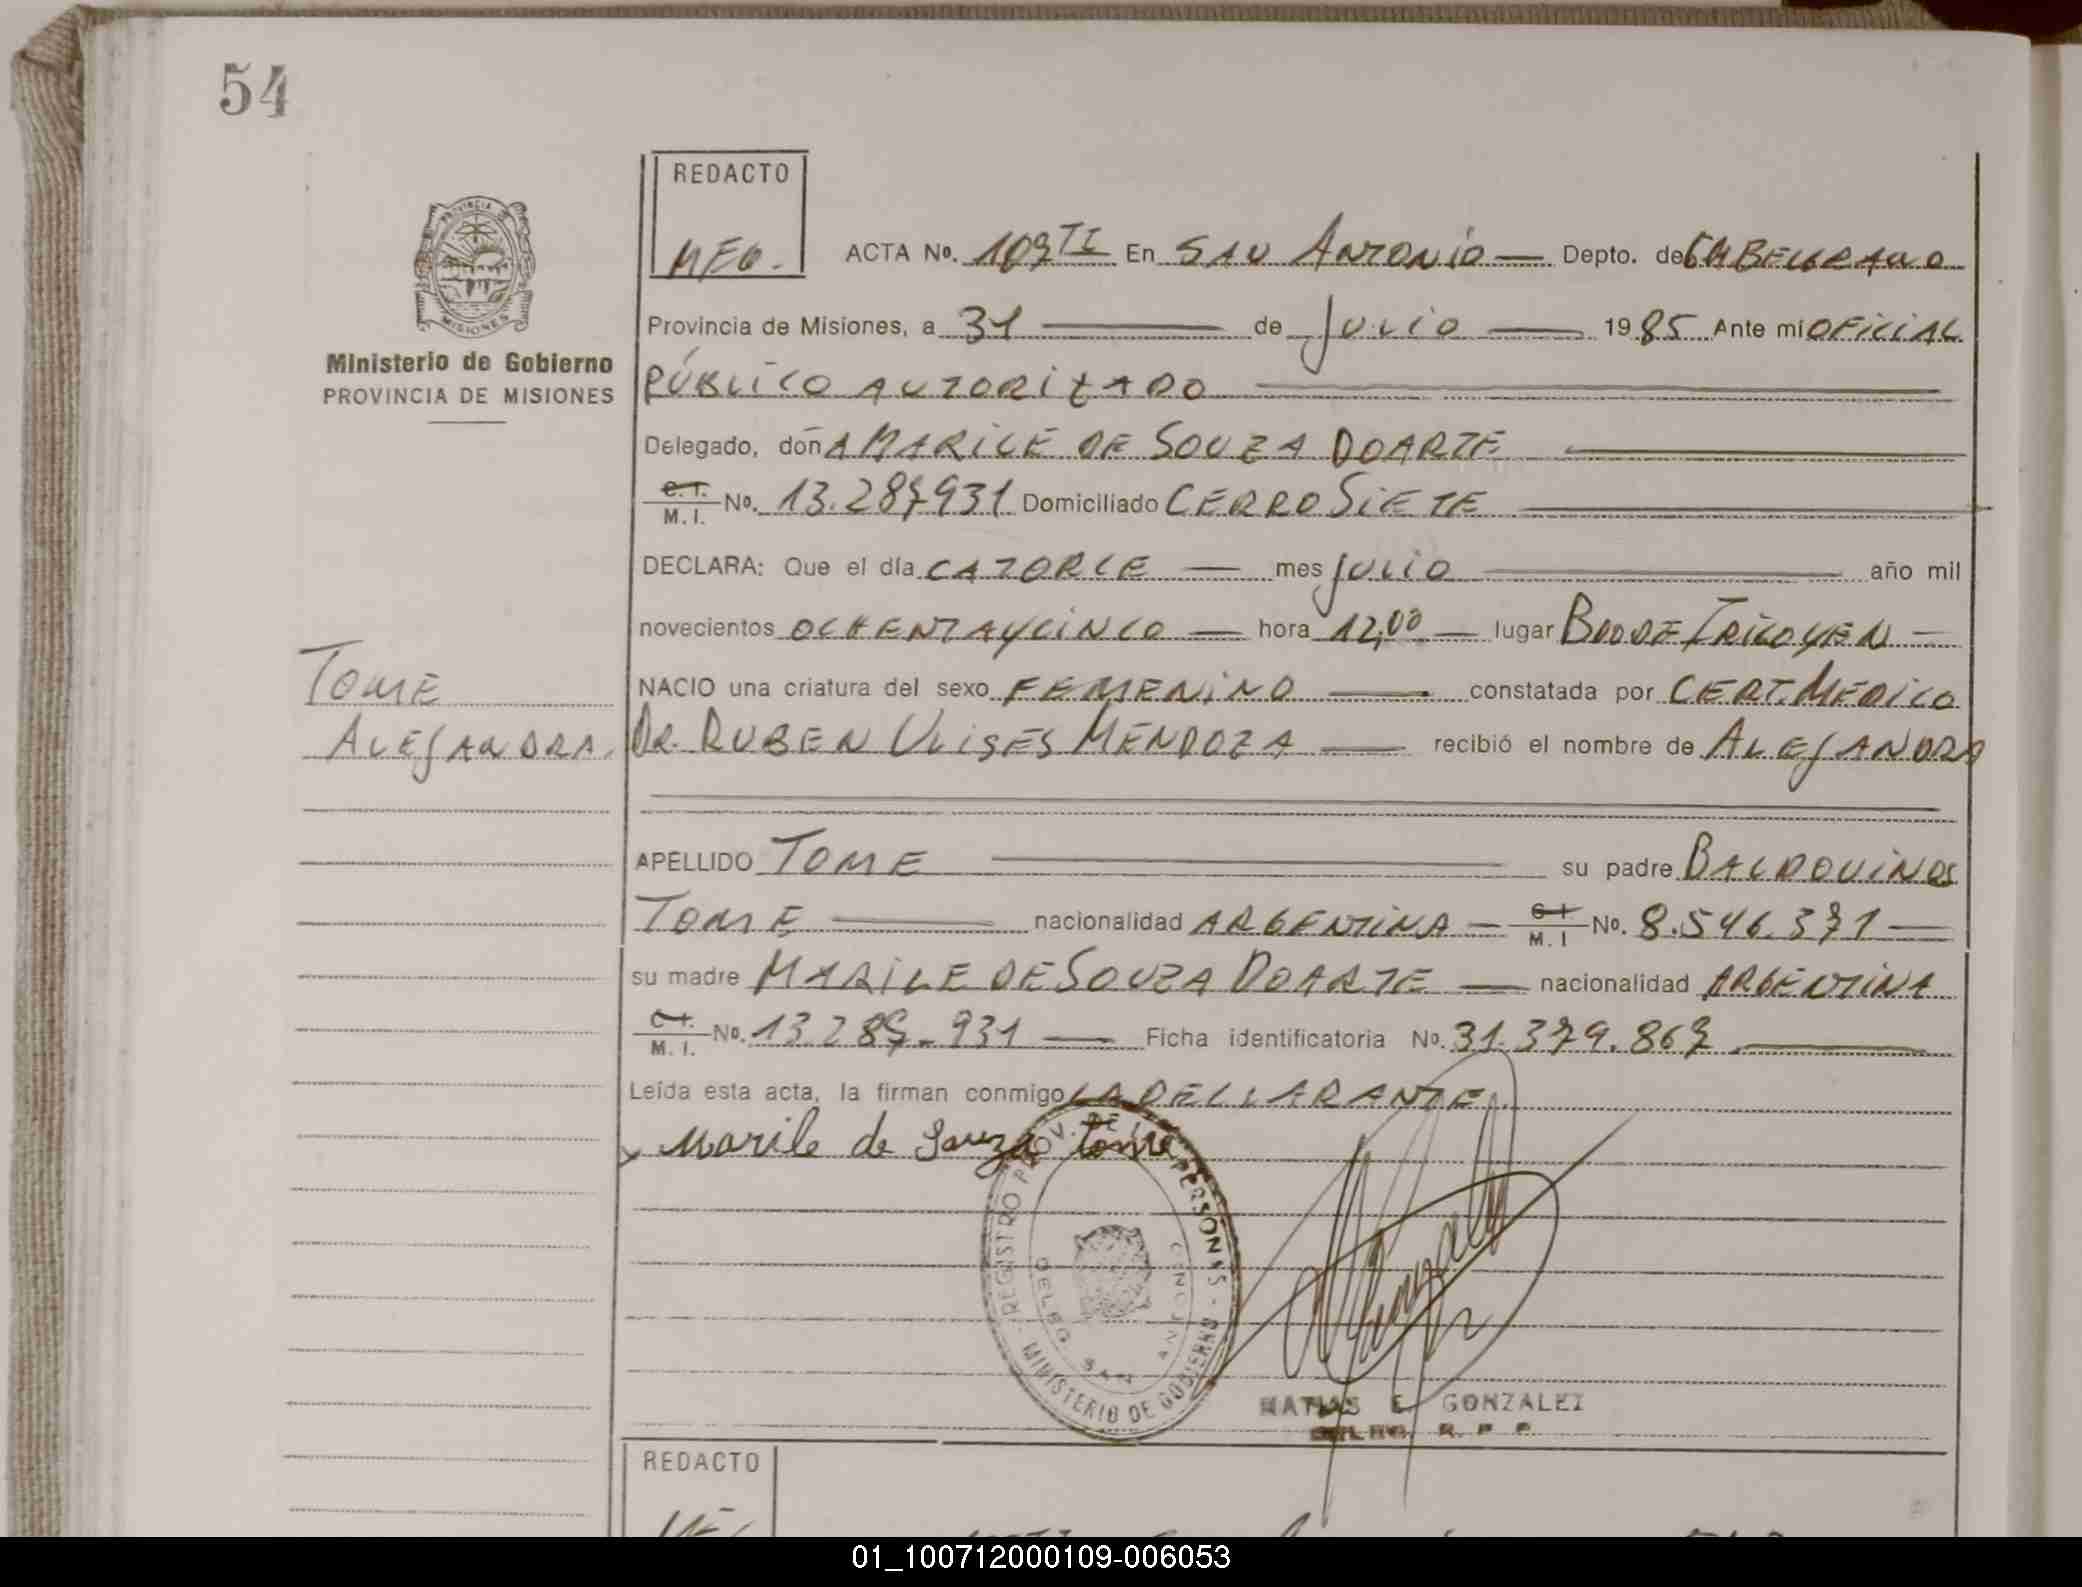 54
REDACTO
MEG.
ACTA No. 109 TI En SAN ANTONIO — Depto. de GM BELGRANO
PROVINCIA DE MISIONES
Provincia de Misiones, a 31 — de JULIO — 1985 Ante mi OFICIAL
Ministerio de Gobierno
PROVINCIA DE MISIONES
PÚBLICO AUTORIZADO
Delegado, don A MARILE DE SOUZA DOARTE
C.I. M.I. No. 13.287931 Domiciliado CERRO SIETE
DECLARA: Que el día CATORCE — mes JULIO — año mil
novecientos OCHENTAYCINCO — hora 12,00 — lugar BDO DE IRIGOYEN —
TOME
ALEJANDRA.
NACIO una criatura del sexo FEMENINO — constatada por CERT. MEDICO
DR. RUBEN ULISES MENDOZA — recibió el nombre de ALEJANDRA
APELLIDO TOME — su padre BALDOUINOS
TOME — nacionalidad ARGENTINA — C.I. M.I No. 8.546.371 —
su madre MARILE DE SOUZA DOARTE — nacionalidad ARGENTINA
C.I. M.I. No. 13.287.931 — Ficha identificatoria No. 31.379.867
Leída esta acta, la firman conmigo LA DECLARANTE.
x Marile de Souza tome
REGISTRO PROV. DE LAS PERSONAS - MINISTERIO DE GOBIERNO
DELEG. SAN ANTONIO
MATIAS E. GONZALEZ
DELEG. R. P. P.
REDACTO
01_100712000109-006053